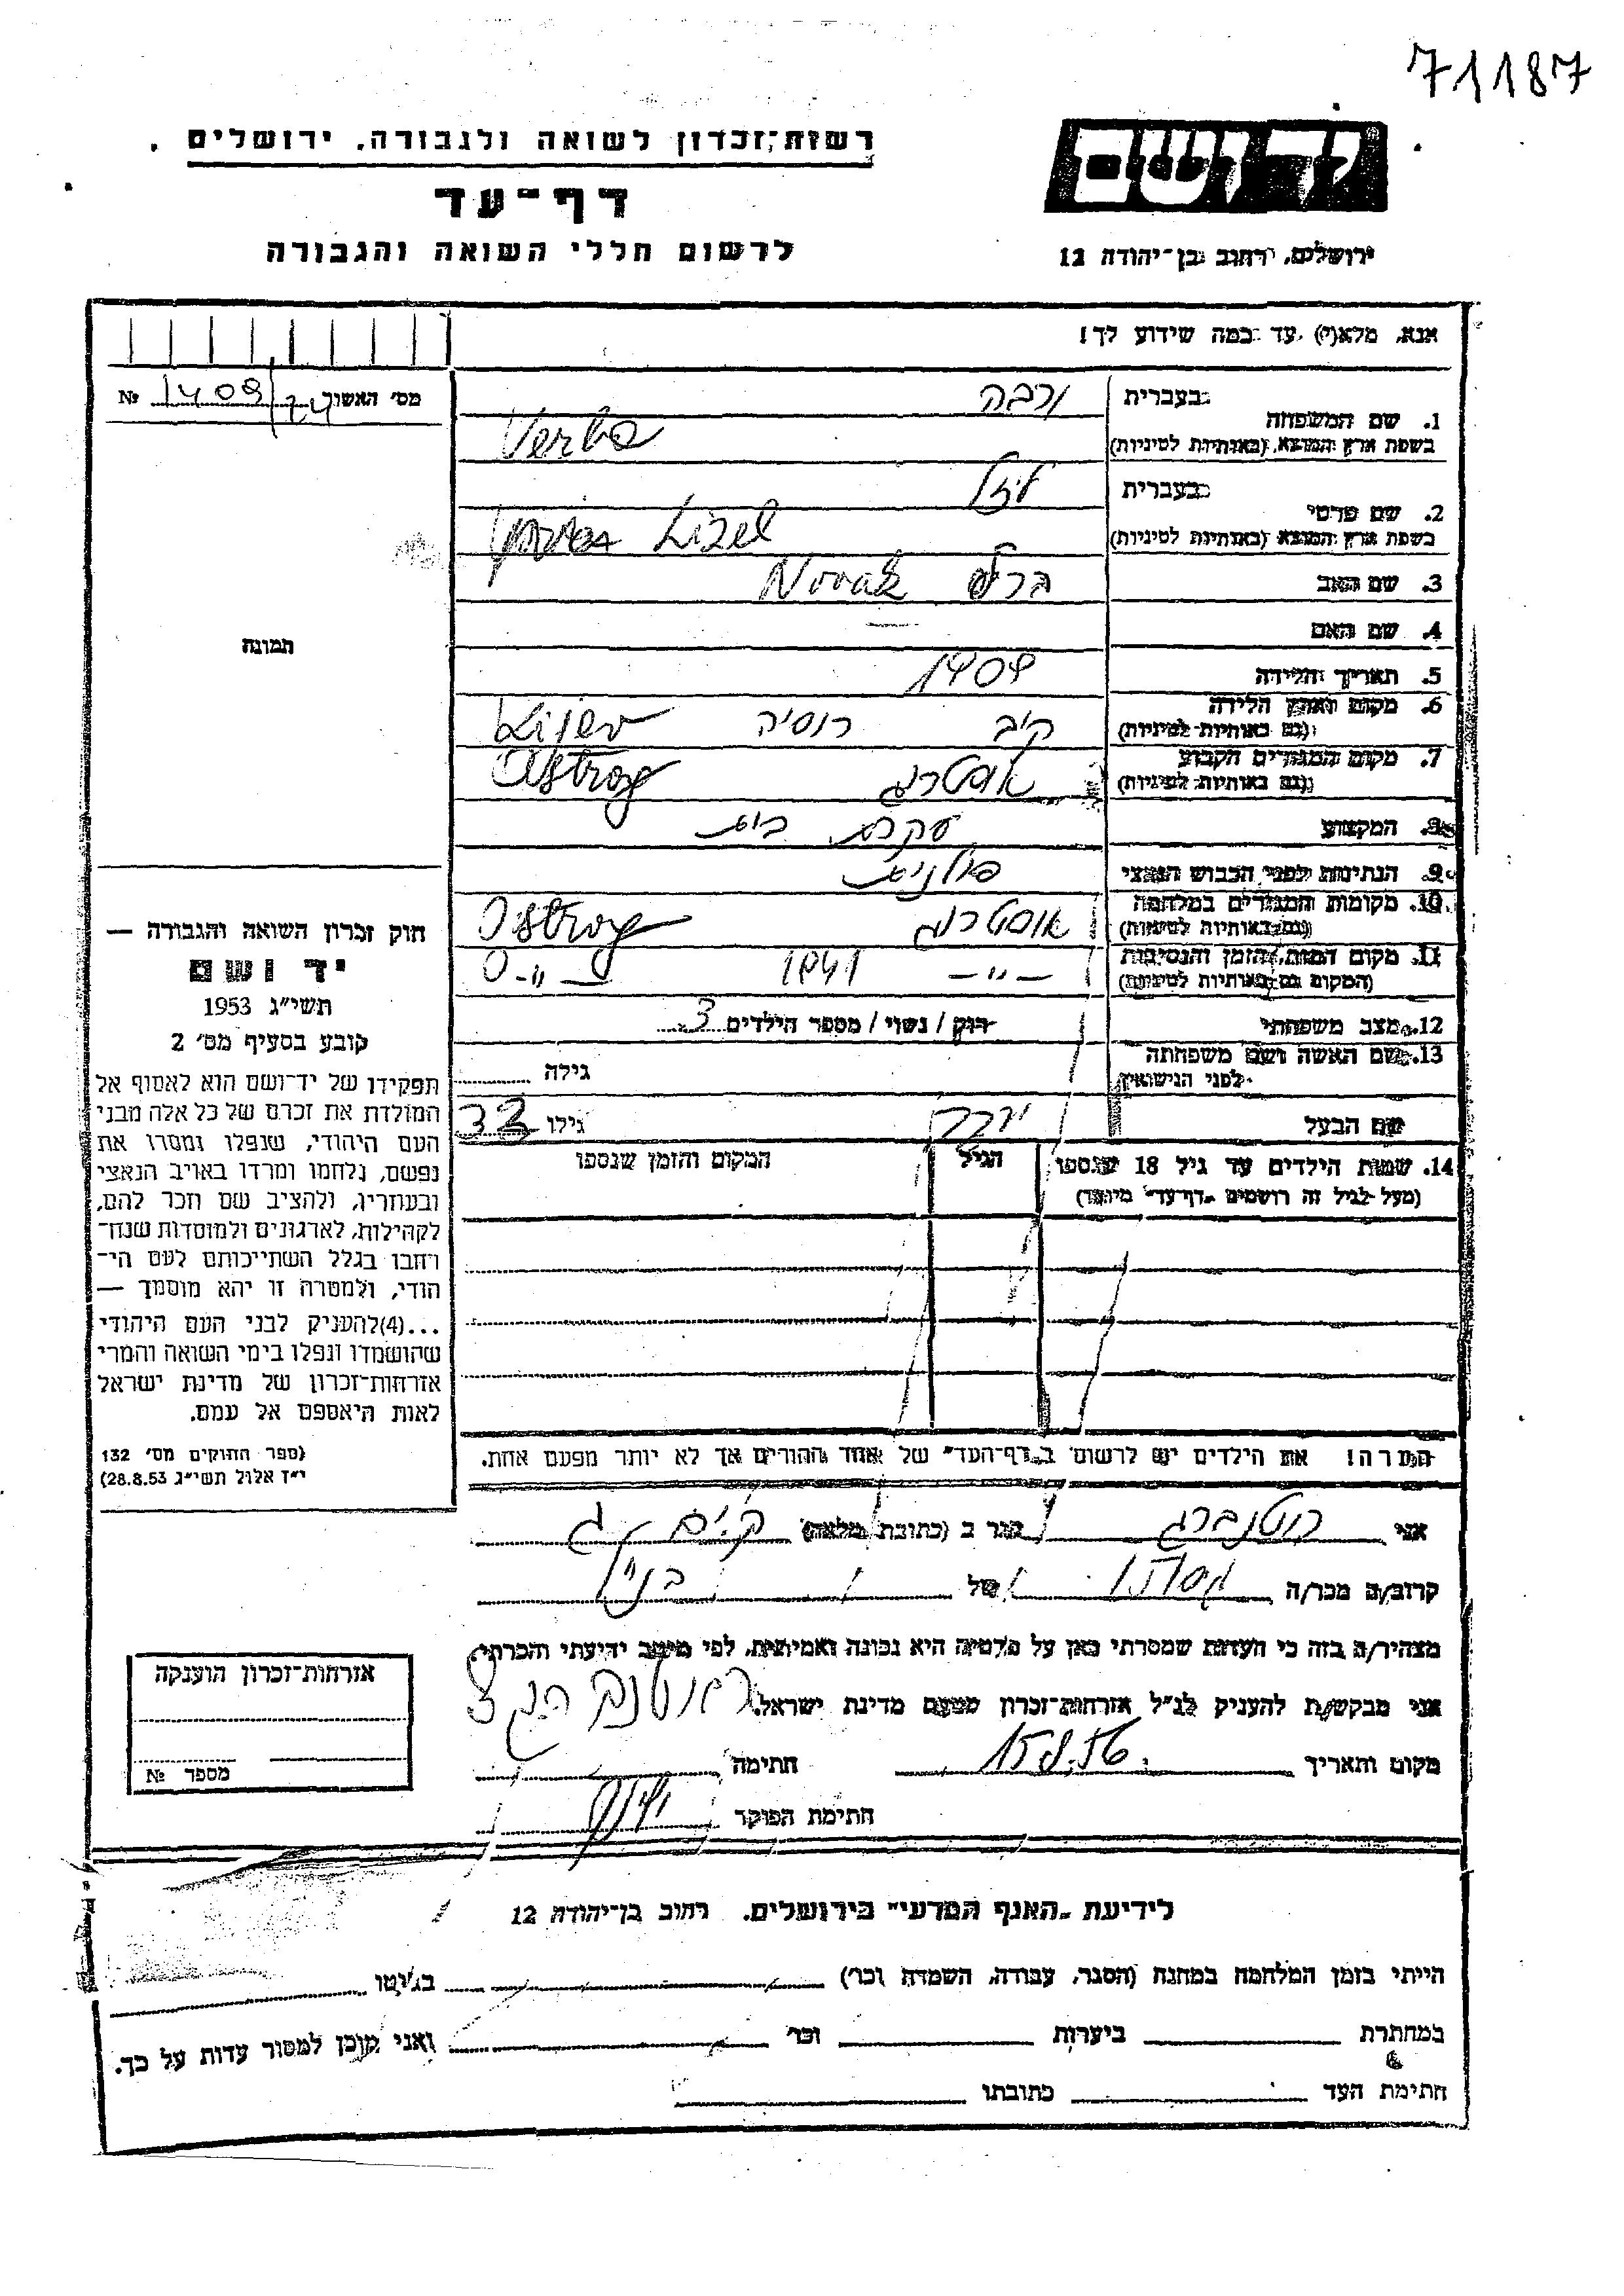 71187
רשות־זכרון לשואה ולגבורה, ירושלים
דף־עד
לרשום חללי השואה והגבורה
יד ושם
ירושלים, רחוב בן־יהודה 12
אנא, מלא(י) עד כמה שידוע לך!
מס׳ האשור № 1409/24
1. שם המשפחה
בעברית ורבה
בשפת ארץ המוצא (באותיות לטיניות) Verba
2. שם פרטי
בעברית ליזל
בשפת ארץ המוצא (באותיות לטיניות) Lizel
3. שם האב Novak
4. שם האם —
5. תאריך הלידה 1909
6. מקום וארץ הלידה
(גם באותיות לטיניות) קיב רוסיה Kijev
7. מקום המגורים הקבוע
(גם באותיות לטיניות) אוסטרוג Ostrog
8. המקצוע עקרת בית
9. הנתינות לפני הכבוש הנאצי פולנית
10. מקומות המגורים במלחמה
(גם באותיות לטיניות) אוסטרוג Ostrog
11. מקום המות, הזמן והנסיבות
(המקום גם באותיות לטיניות) — ״ — 1941 — ״ —
12. מצב משפחתי רווק / נשוי / מספר הילדים 3
13. שם האשה ושם משפחתה
לפני הנישואין גילה
שם הבעל גילו 33
14. שמות הילדים עד גיל 18 שנספו הגיל המקום והזמן שנספו
(מעל לגיל זה רושמים „דף־עד״ מיוחד)
הערה! את הילדים יש לרשום ב„דף־העד״ של אחד ההורים אך לא יותר מפעם אחת.
תמונה
חוק זכרון השואה והגבורה —
יד ושם
תשי״ג 1953
קובע בסעיף מס׳ 2
תפקידו של יד־ושם הוא לאסוף אל
המולדת את זכרם של כל אלה מבני
העם היהודי, שנפלו ומסרו את
נפשם, נלחמו ומרדו באויב הנאצי
ובעוזריו, ולהציב שם וזכר להם,
לקהילות, לארגונים ולמוסדות שנח־
רבו בגלל השתייכותם לעם הי־
הודי, ולמטרה זו יהא מוסמך —
...(4)להעניק לבני העם היהודי
שהושמדו ונפלו בימי השואה והמרי
אזרחות־זכרון של מדינת ישראל
לאות היאספם אל עמם.
(ספר החוקים מס׳ 132
י״ז אלול תשי״ג 28.8.53)
אני רוטנברג הגר ב (כתובת מלאה)
קרוב/ה מכר/ה של
מצהיר/ה בזה כי העדות שמסרתי כאן על פרטיה היא נכונה ואמיתית, לפי מיטב ידיעתי והכרתי.
אני מבקש/ת להעניק לנ״ל אזרחות־זכרון מטעם מדינת ישראל.
מקום ותאריך 15.8.56 חתימה
חתימת הפוקד
אזרחות־זכרון הוענקה
מספר №
לידיעת „האגף המדעי״ בירושלים, רחוב בן־יהודה 12
הייתי בזמן המלחמה במחנה (הסגר, עבודה, השמדה וכו׳) בגיטו
במחתרת ביערות וכו׳ ואני מוכן למסור עדות על כך.
חתימת העד כתובתו